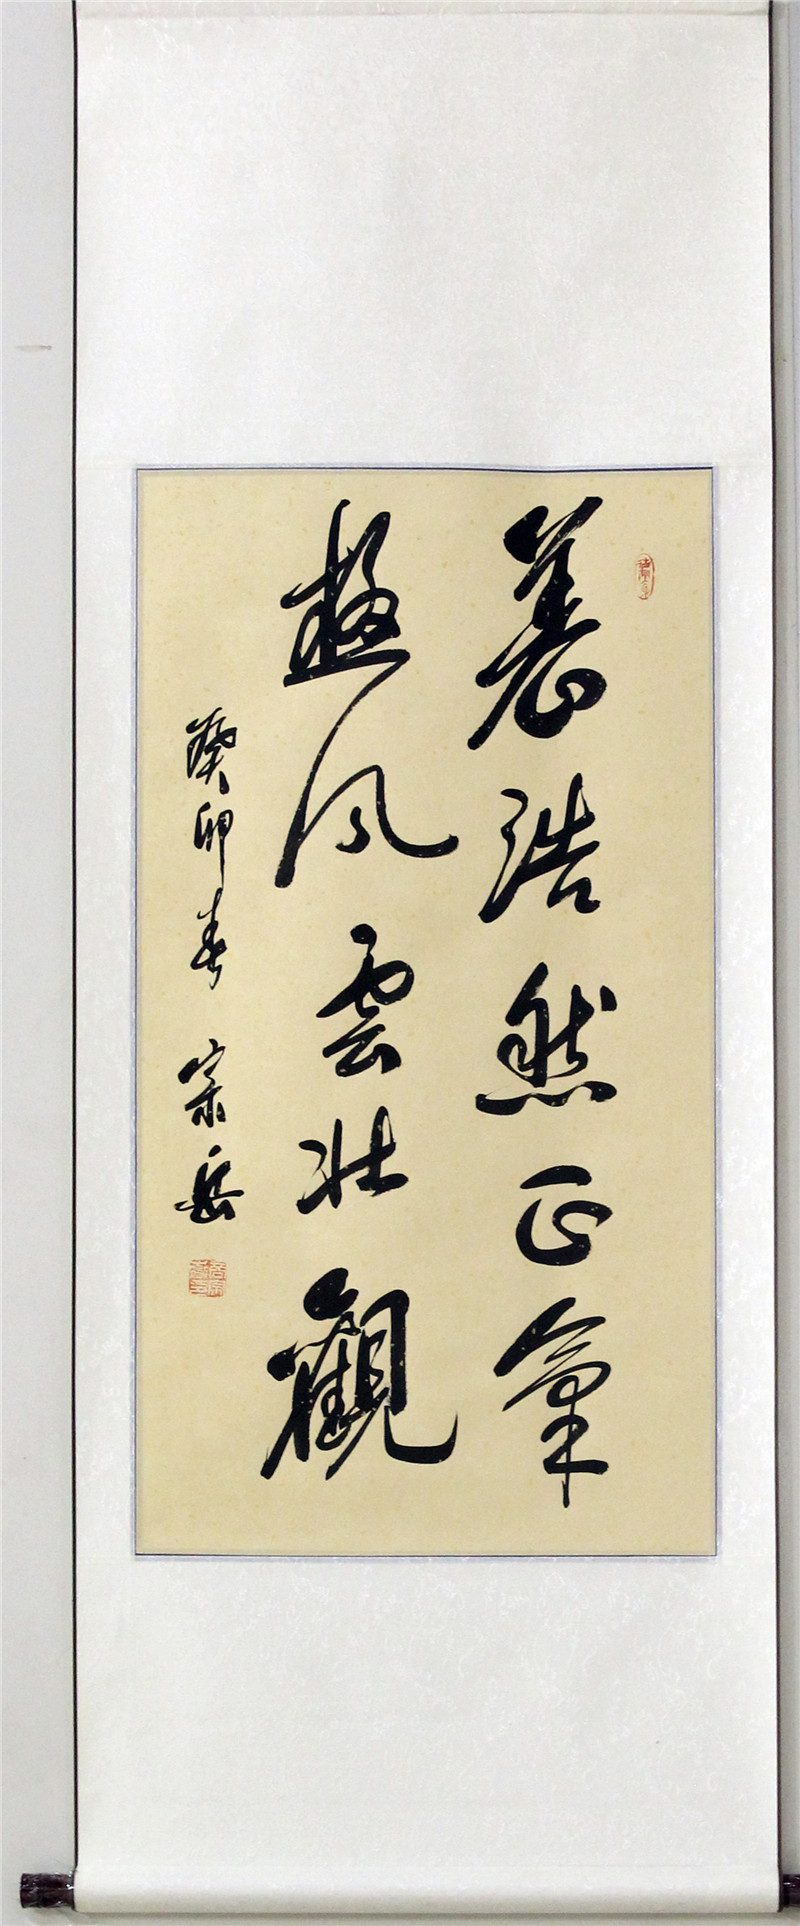 養浩然正氣
極風雲壯觀
癸卯春 宗岳